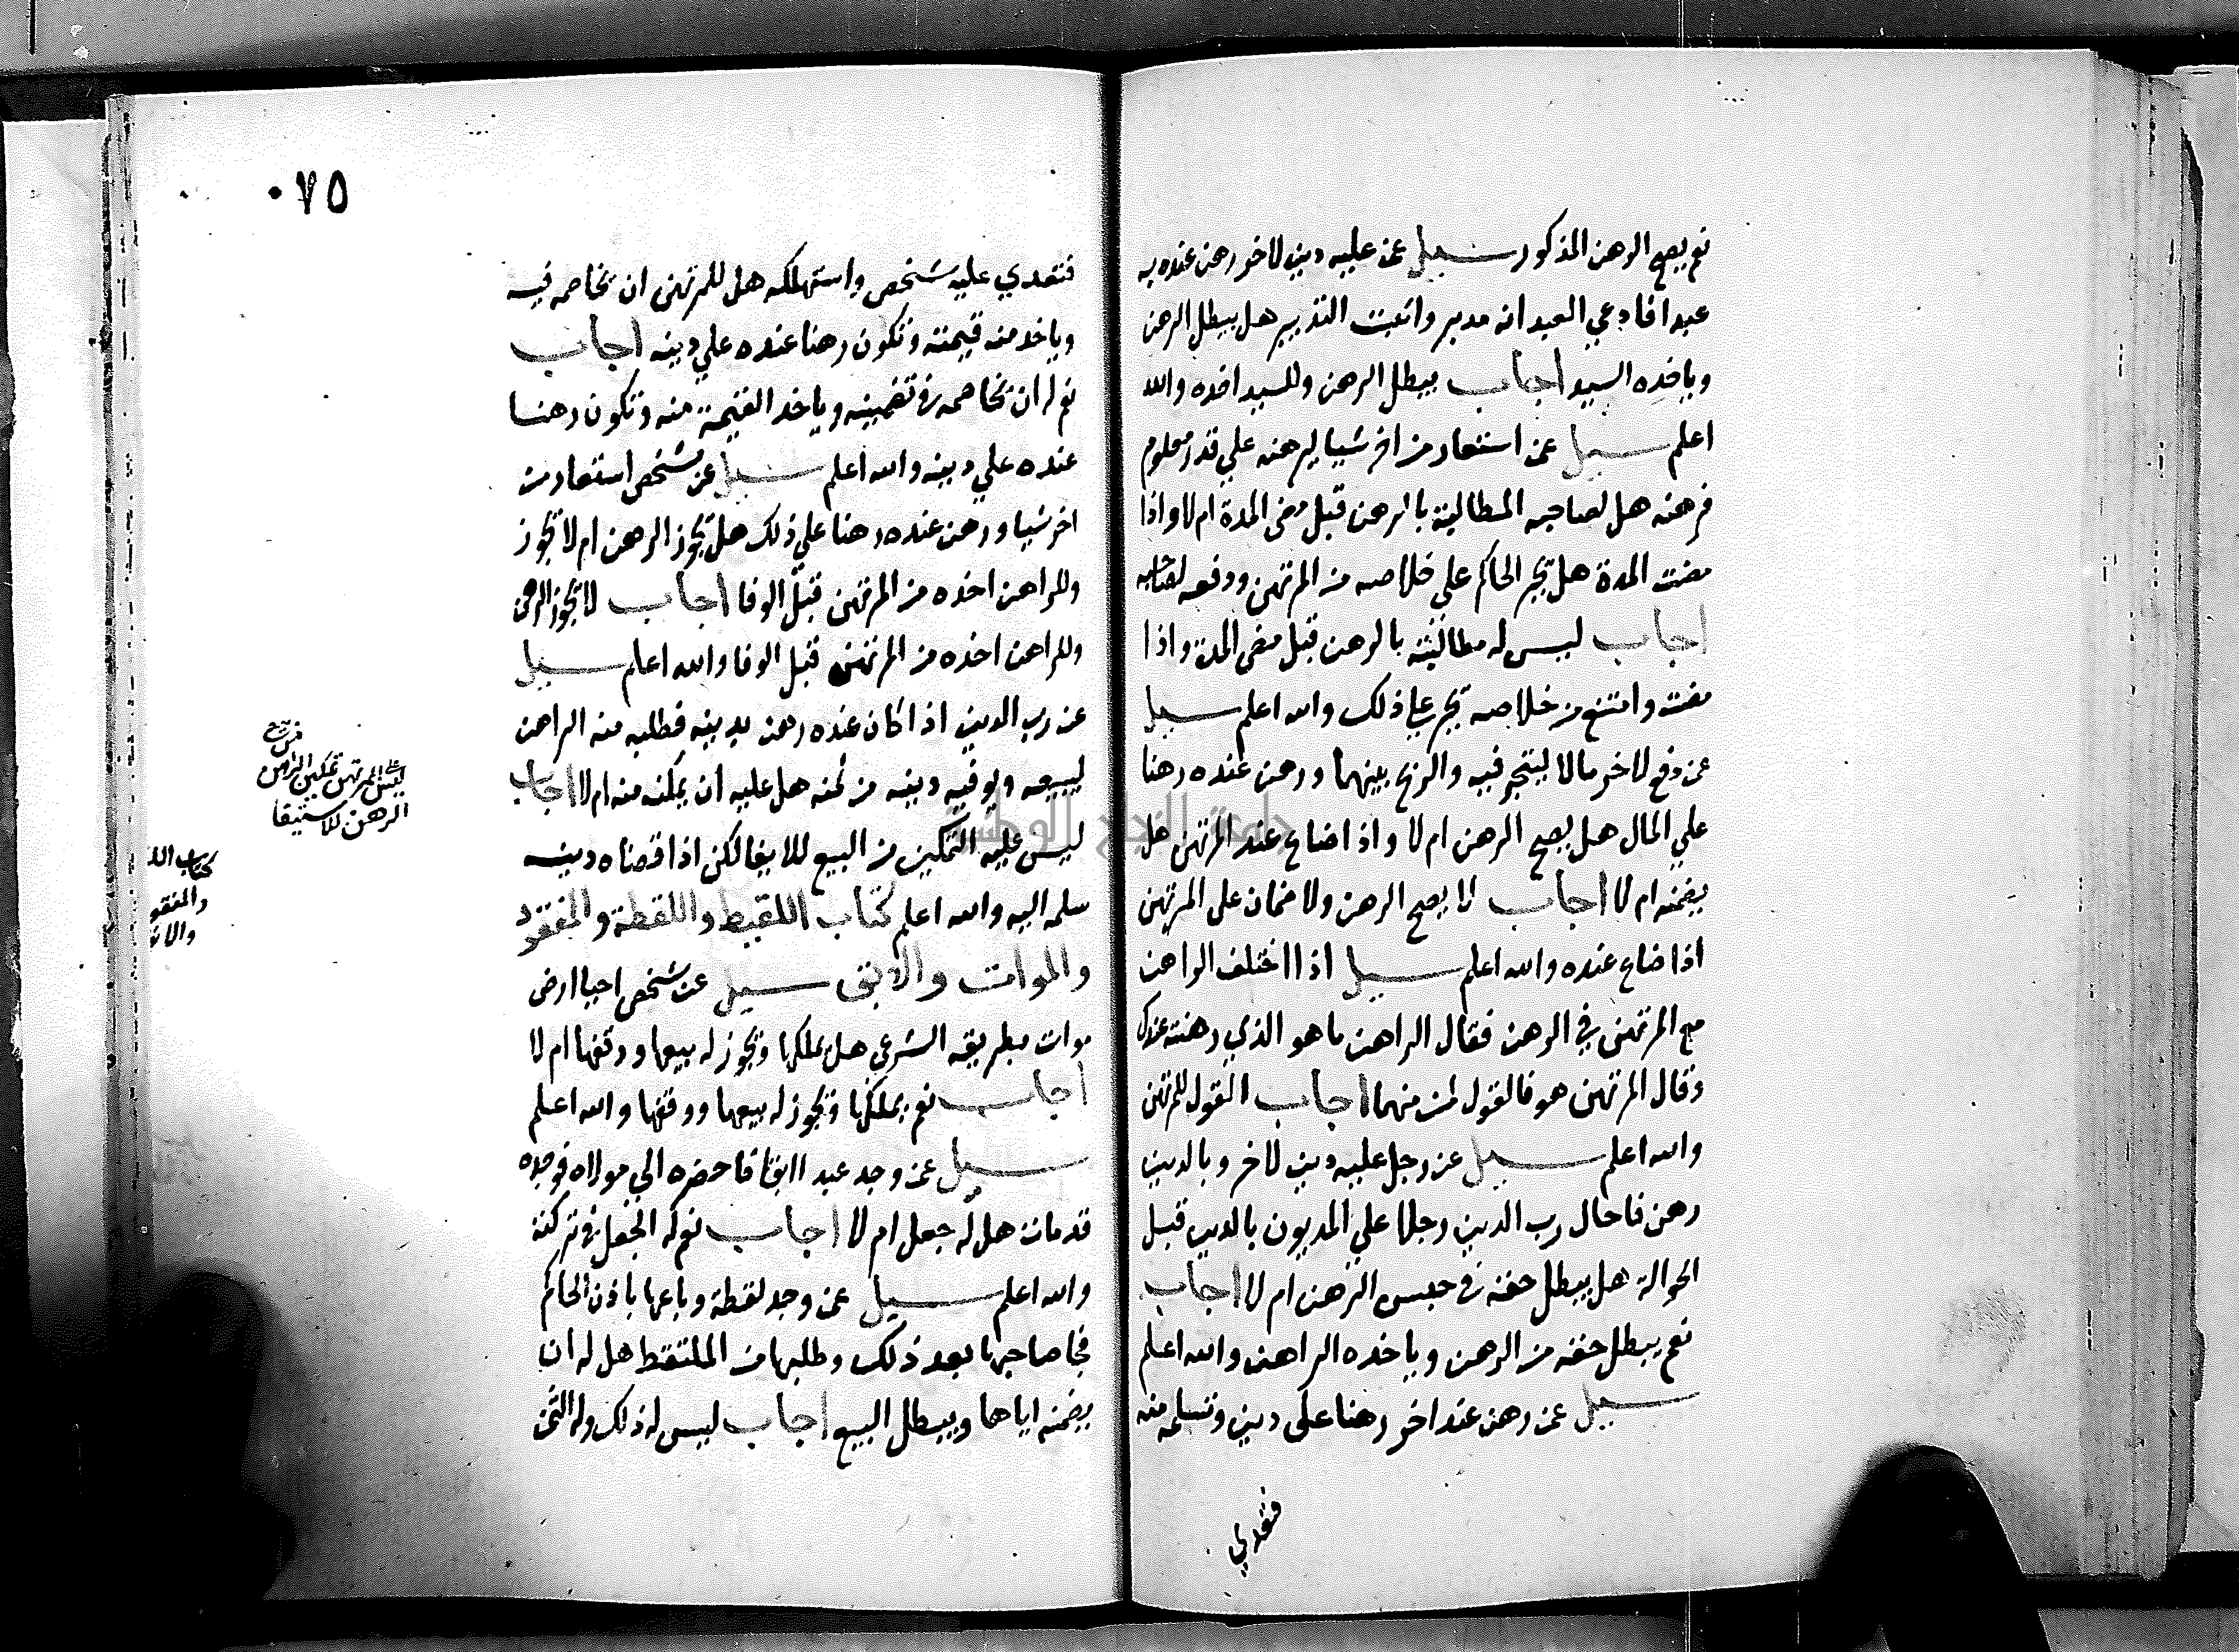 نعم يصح الرهن المذكور سيل عن عليه دين لاخر رهن عنده به
عبدا فادعي العبد انه مدبر واثبت التدبير هل يبطل الرهن
وياخذه السيد اجاب يبطل الرهن وللسيد اخذه والله
اعلم سيل عن استعار من اخر شيا ليرهنه علي قدر معلوم
فرهنه هل لصاحبه المطالبة بالرهن قبل مضي المدة ام لا واذا
مضت المدة هل يجبر الحاكم علي خلاصه من المرتهن ودفعه لصاحبه
اجاب ليس له مطالبته بالرهن قبل مضي المدة واذا
مضت وامتنع من خلاصه يجبر علي ذلك والله اعلم سيل
عن دفع لاخر مالا ليتجر فيه والربح بينهما ورهن عنده رهنا
علي المال هل يصح الرهن ام لا واذا ضاع عند المرتهن هل
يضمنه ام لا اجاب لا يصح الرهن ولا ضمان علي المرتهن
اذا ضاع عنده والله اعلم سيل اذا اختلف الراهن
مع المرتهن في الرهن فقال الراهن ما هو الذي رهنته عندك
وقال المرتهن هو فالقول لمن منهما اجاب القول للمرتهن
والله اعلم سيل عن رجل عليه دين لاخر وبالدين
رهن فاحال رب الدين رجلا علي المديون بالدين قبل
الحوالة هل يبطل حقه في حبس الرهن ام لا اجاب
نعم يبطل حقه من الرهن وياخذه الراهن والله اعلم
سيل عن رهن عند اخر رهنا علي دين وتسلمه منه
فتعدي
٠٧٥
فتعدي عليه شخص واستهلكه هل للمرتهن ان يخاصمه فيه
وياخذ منه قيمته وتكون رهنا عنده علي دينه اجاب
نعم له ان يخاصمه في تضمينه وياخد القيمة منه وتكون رهنا
عنده علي دينه والله اعلم سيل عن شخص استعار من
اخر شيا ورهن عنده رهنا علي ذلك هل يجوز الرهن ام لا يجوز
وللراهن اخذه من المرتهن قبل الوفا اجاب لا يجوز الرهن
وللراهن اخذه من المرتهن قبل الوفا والله اعلم سيل
عن رب الدين اذا كان عنده رهن بدينه فطلبه منه الراهن
ليبيعه ويوفيه دينه من ثمنه هل عليه ان يمكنه منه ام لا اجاب
ليس عليه التمكين من البيع للايفا لكن اذا قضاه دينه
سلمه اليه والله اعلم كتاب اللقيط واللقطة والمفقود
والموات والابق سيل عن شخص احيا ارض
موات بطريقه الشرعي هل يملكها ويجوز له بيعها ووقفها ام لا
اجاب نعم يملكها ويجوز له بيعها ووقفها والله اعلم
سيل عن وجد عبدا ابقا فاحضره الي مولاه فوجده
قد مات هل له جعل ام لا اجاب نعم له الجعل في تركته
والله اعلم سيل عن وجد لقطة وباعها باذن الحاكم
فجا صاحبها بعد ذلك وطلبها من الملتقط هل له ان
يضمنه اياها ويبطل البيع اجاب ليس له ذلك وله الثمن
ليس علي المرتهن تمكين الراهن
الرهن للاستيفا
كتاب
والمفقو
جامعة النجاح الوطنية